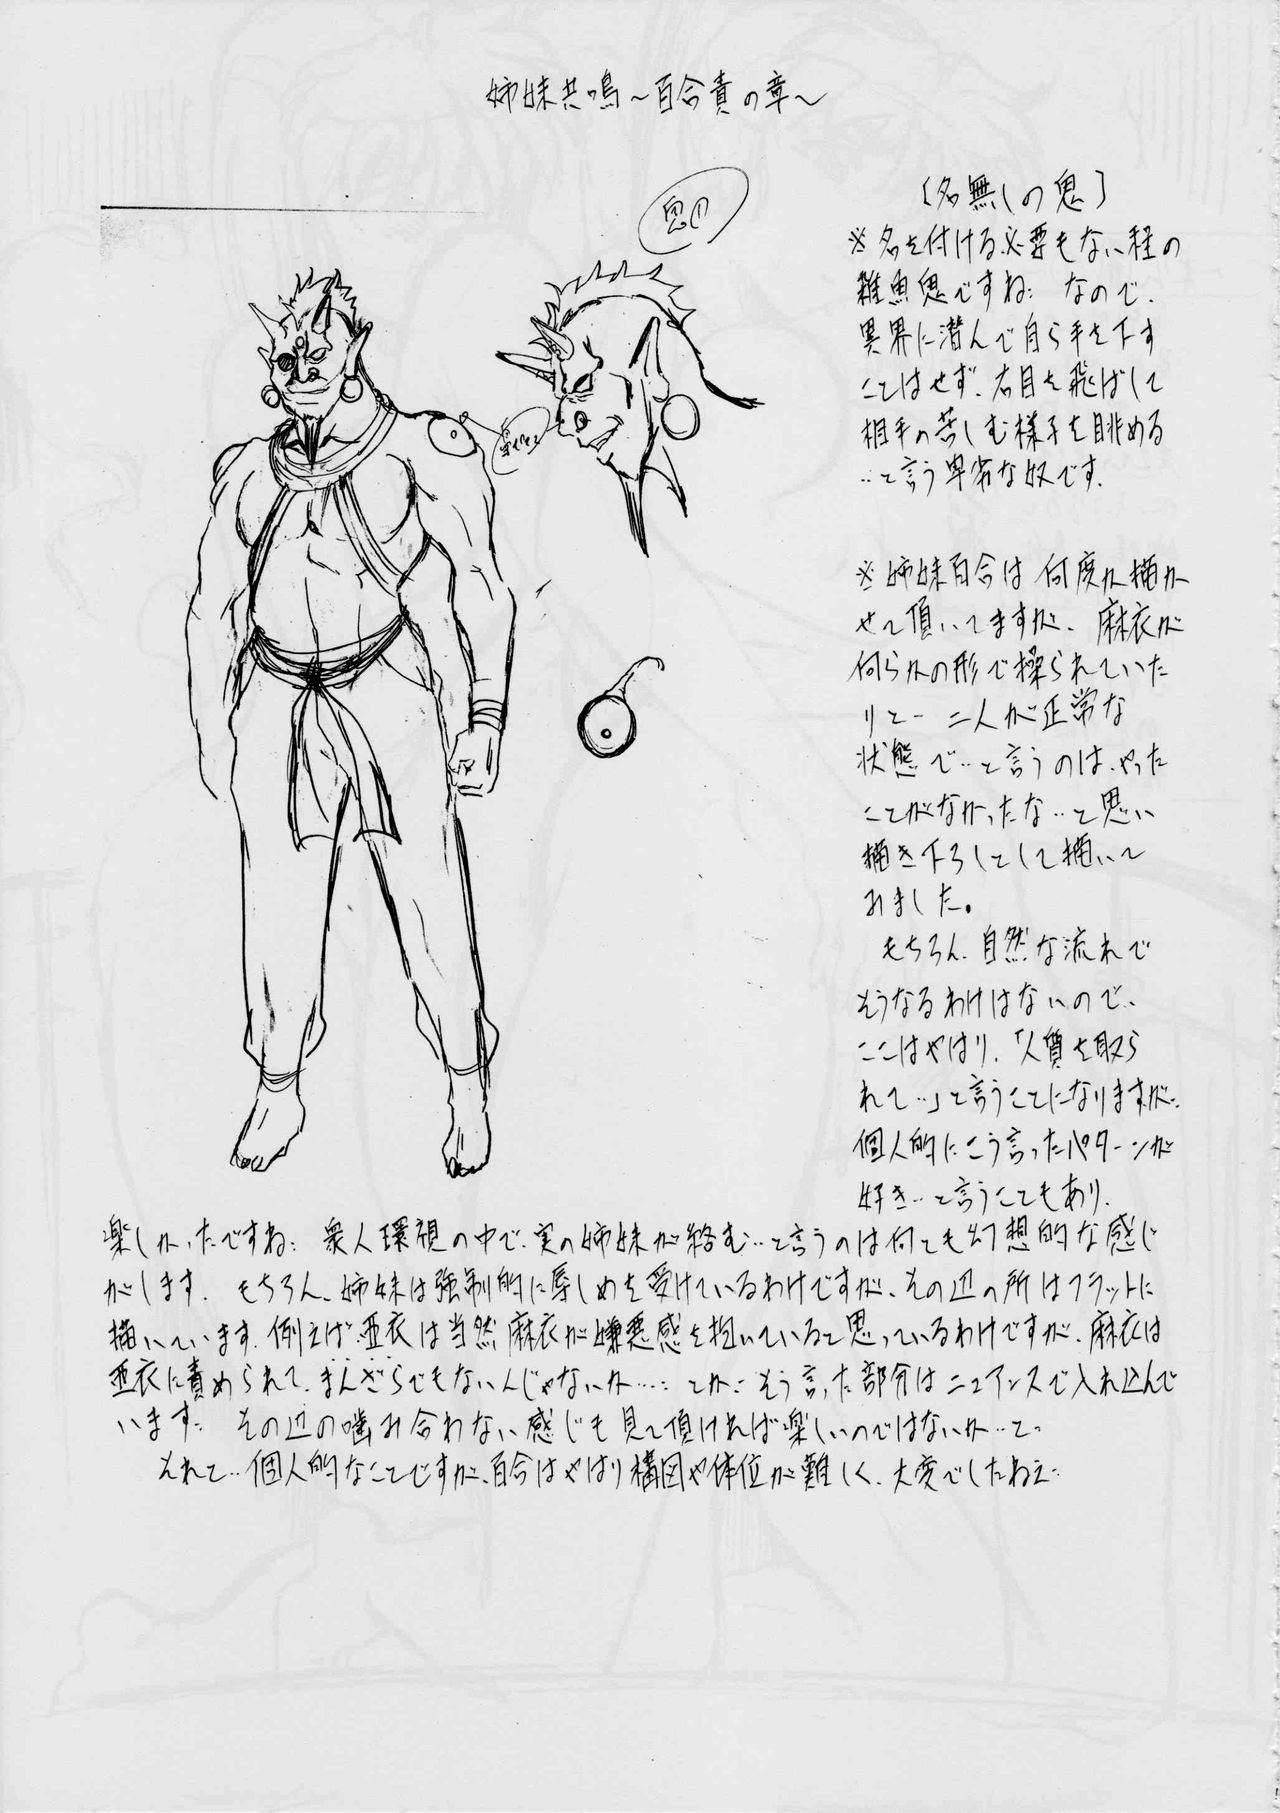 姉妹共鳴～百合責の章～
鬼①
〔名無しの鬼〕
※名を付ける必要もない程の
雑魚鬼ですね… なので、
異界に潜んで自ら手を下す
ことはせず、右目を飛ばして
相手の苦しむ様子を眺める
…と言う卑劣な奴です。
※姉妹百合は何度か描か
せて頂いてますが、麻衣が
何らかの形で操られていた
りと… 二人が正常な
状態で…と言うのは、やった
ことがなかったな…と思い
描き下ろしとして描いて
みました。
もちろん、自然な流れで
そうなるわけはないので、
ここはやはり、「人質を取ら
れて…」と言うことになりますが…
個人的にこう言ったパターンが
好き…と言うこともあり、
楽しかったですね… 衆人環視の中で、実の姉妹が絡む…と言うのは何とも幻想的な感じ
がします。 もちろん、姉妹は強制的に辱しめを受けているわけですが、その辺の所はフラットに
描いています。例えば、亜衣は当然麻衣が嫌悪感を抱いていると思っているわけですが、麻衣は
亜衣に責められて、まんざらでもないんじゃないか…… とか… そう言った部分はニュアンスで入れ込んで
います… その辺の噛み合わない感じも見て頂ければ楽しいのではないか…と…
それと… 個人的なことですが、百合はやはり構図や体位が難しく、大変でしたねえ…